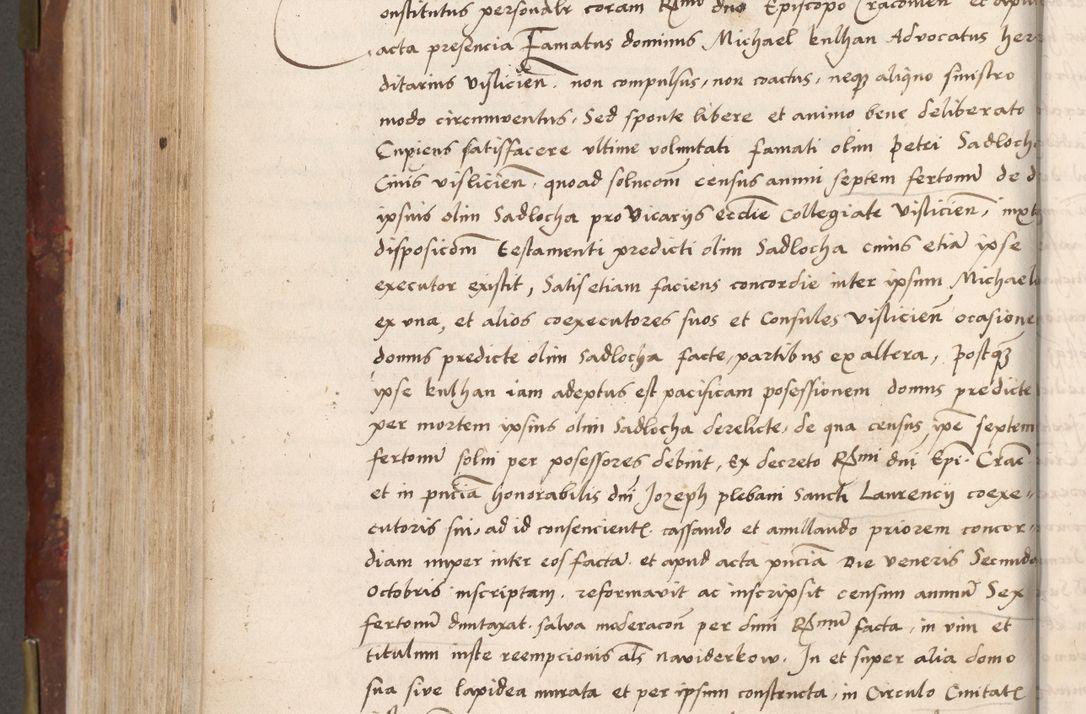 onstitutus personaliter coram Rmo dno Episcopo Cracovien et
acta presencia Famatus dominus Michael kulhan Advocatus here
ditarius Vislicien. non compulsus, non coactus, neqz aliquo sinistro
modo circumventus, Sed sponte libere et animo bene deliberato
Cupiens satisfacere ultime voluntati famati olim petri Sadlocha
Civis vislicien, quoad solucom census annui septem fertonu de d
ipsius olim Sadlocha pro Vicarijs ecclie Collegiate Vislicien, iuxta
disposicom testamenti predicti olim Sadlocha cuius etia ipse
executor existit, Satis etiam faciens concordie inter ipsum Michaele
ex una, et alios coexecutores suos et Consules vislicien ocasione
domus predicte olim Sadlocha facte, partibus ex altera, postqz
ipse kulhan iam adeptus est pacificam posessionem domus predicte
per mortem ipsius olim Sadlocha derelicte, de qua census ipe septem
fertonu solui per posessores debuit, Ex decreto Rmi dni Epi Crac
et in pncia honorabilis dni Jozeph plebani Sancti Laurencij coexe-
cutoris sui, ad id consencient. cassando et anullando priorem concor-
diam nuper inter eos facta. et apud acta pncia Die veneris Secunda
Octobris inscriptam. reformavit ac inscripsit censum annuu Sex
fertonu duntaxat. salva moderacon per dnm Rmu facta, in vim et
titulum iuste reempcionis als naviderkow. In et super alia domo
sua sive lapidea murata et per ipsum constructa, in Circulo Civitat